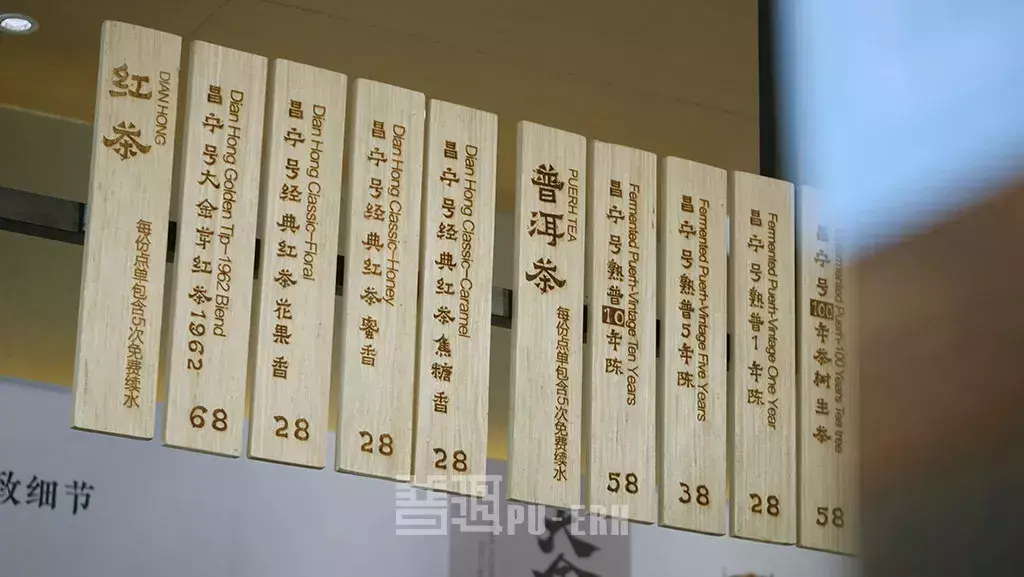 红茶
DIAN HONG
每份点单包含5次免费续水
Dian Hong Golden Tip-1962 Blend
昌宁号大金针红茶1962
68
Dian Hong Classic-Floral
昌宁号经典红茶花果香
28
Dian Hong Classic-Honey
昌宁号经典红茶蜜香
28
Dian Hong Classic-Caramel
昌宁号经典红茶焦糖香
28
普洱茶
PUERH TEA
每份点单包含5次免费续水
Fermented Puerh-Vintage Ten Years
昌宁号熟普10年陈
58
Fermented Puerh-Vintage Five Years
昌宁号熟普5年陈
38
Fermented Puerh-Vintage One Year
昌宁号熟普1年陈
28
Puerh-100 Years Tea tree
昌宁号100年茶树生茶
58
致细节
普洱PU-ERH